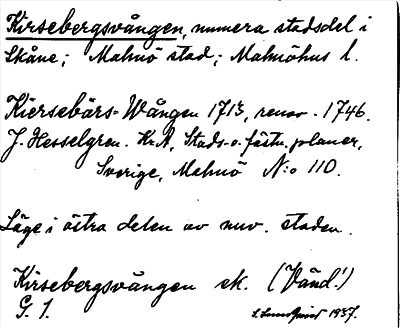 Kirsebergsvången, numera stadsdel i
Skåne; Malmö stad; Malmöhus l.
Kiersebärs-Wången 1713, renov. 1746.
J. Hesselgren. Kr.A, Stads- o. fästn. planer,
Sverige, Malmö N:o 110.
Läge i östra delen av nuv. staden.
Kirsebergsvången ek. (Vänd!)
G. 1.
S. Lundquist 1937.